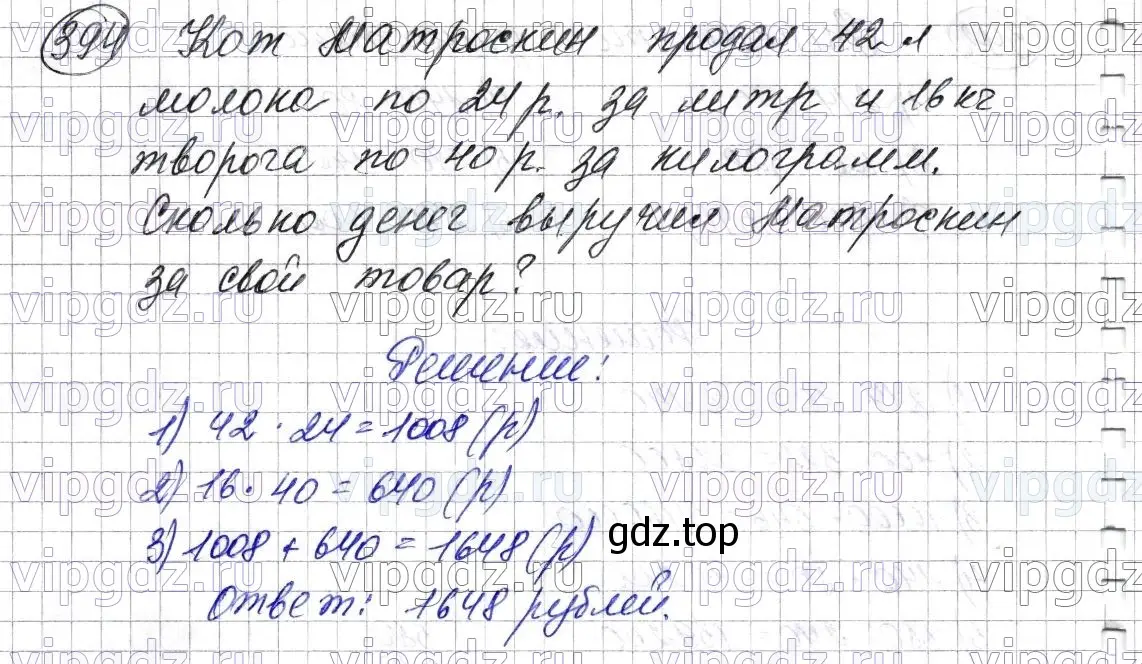 394 Кот Матроскин продал 42 л
молока по 24 р. за литр и 16 кг
творога по 40 р. за килограмм.
Сколько денег выручил Матроскин
за свой товар?
Решение:
1) 42 · 24 = 1008 (р)
2) 16 · 40 = 640 (р)
3) 1008 + 640 = 1648 (р)
gdz.top
Ответ: 1648 рублей.
vipgdz.ru